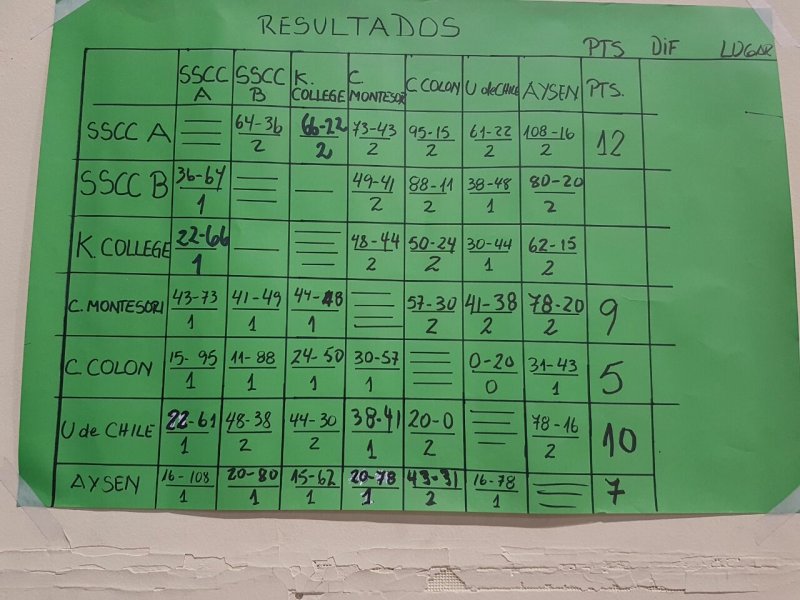 RESULTADOS
PTS DIF LUGAR
SSCC A SSCC B K. COLLEGE C MONTESORI C COLON U de CHILE AYSEN PTS.
SSCC A 64-36 2 66-22 2 73-43 2 95-15 2 61-22 2 108-16 2 12
SSCC B 36-64 1 — 49-41 2 88-11 2 38-48 1 80-20 2
K. COLLEGE 22-66 1 — 48-44 2 50-24 2 30-44 1 62-15 2
C. MONTESORI 43-73 1 41-49 1 44-48 1 57-30 2 41-38 2 78-20 2 9
C. COLON 15-95 1 11-88 1 24-50 1 30-57 1 0-20 0 31-43 1 5
U de CHILE 22-61 1 48-38 2 44-30 2 38-41 1 20-0 2 78-16 2 10
AYSEN 16-108 1 20-80 1 15-62 1 20-78 1 43-31 2 16-78 1 7